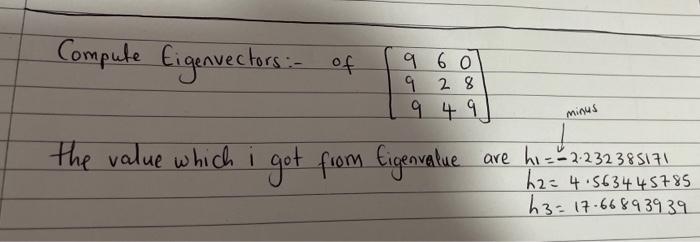 Compute Eigenvectors:- of [9 6 0
9 2 8
9 4 9]
minus
the value which i got from Eigenvalue are h1=-2.232385171
h2= 4.563445785
h3= 17.66893939